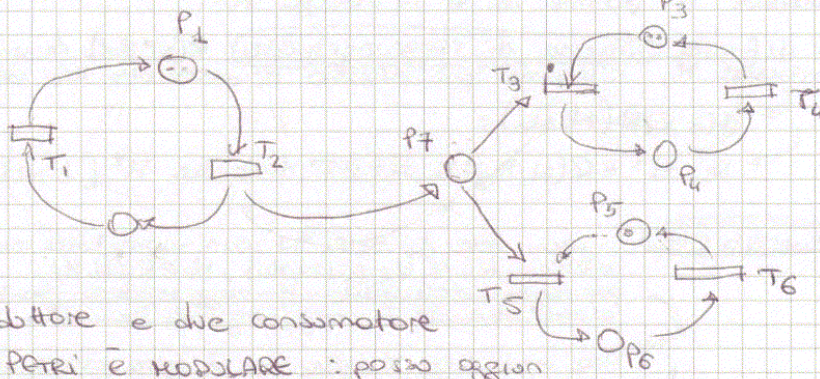 P1
P3
T3
T4
T1
T2
P7
P4
P5
T5
T6
P6
duttore e due consumatore
PETRI è MODULARE : posso aggiun